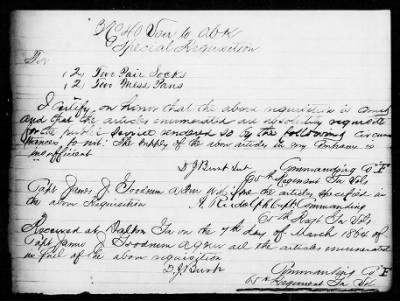 No 40
Special Requisition
For
2 Two Pair Socks
2 Two Mess Pans
I certify on honor that the above requisition is correct
and that the articles enumerated are absolutely requisite
for the public service rendered so by the following circum
stances to wit: The supply of the above articles in my Company is
insufficient
D J Burt Lieut
Commanding Co "F"
65th Regiment Ia Vols
Capt James J. Goodwin A Q M will issue the articles specified in
the above Requisition
A. Rudolph Capt Commanding
65th Regt Ia Vols
Received at Dalton Ga on the 7th day of March 1864 of
Capt James J. Goodwin A Q M all the articles enumerated
in full of the above requisition
D. J. Burt
Commanding Co F
65th Regiment Ia Vol